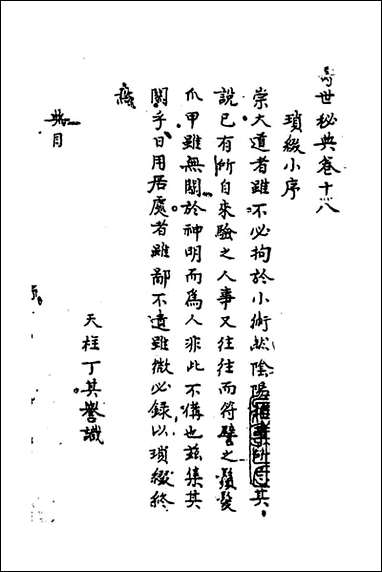 壽世秘典卷十八
瑣綴小序
崇大道者雖不必拘於小術然陰陽其
說已有所自來驗之人事又往往而符譬之鬚髮
爪甲雖無關於神明而為人非此不備也茲集其
關乎日用居處者雖鄙不遺雖微必錄以瑣綴終
焉
天柱丁其譽識
類目